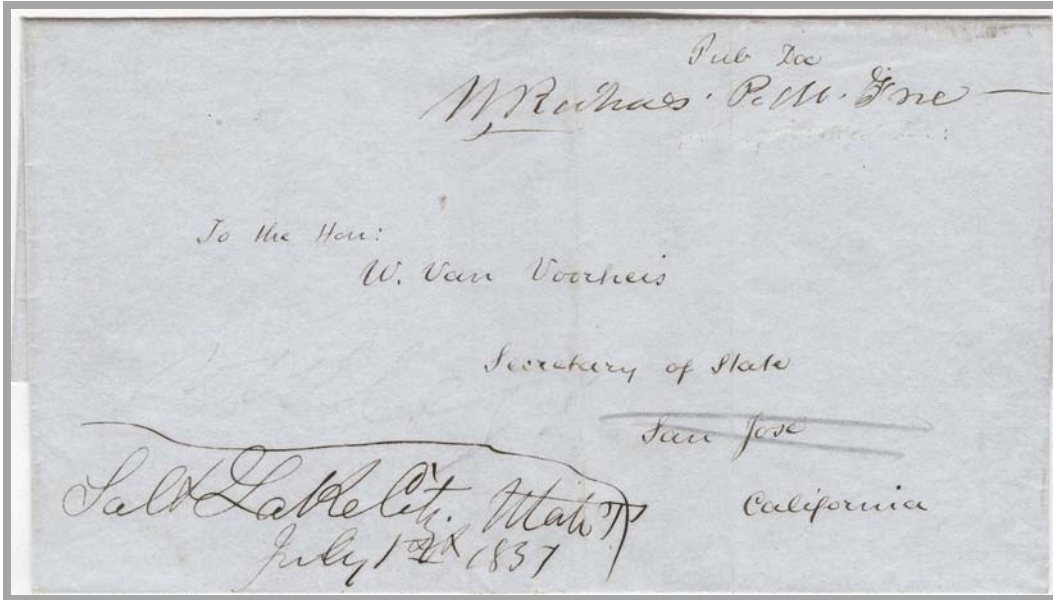 Pub Doc
W Richards. P.M. Free
To the Hon:
W. Van Voorheis
Secretary of State
San José
California
Salt Lake City. Utah T
July 1st 1851